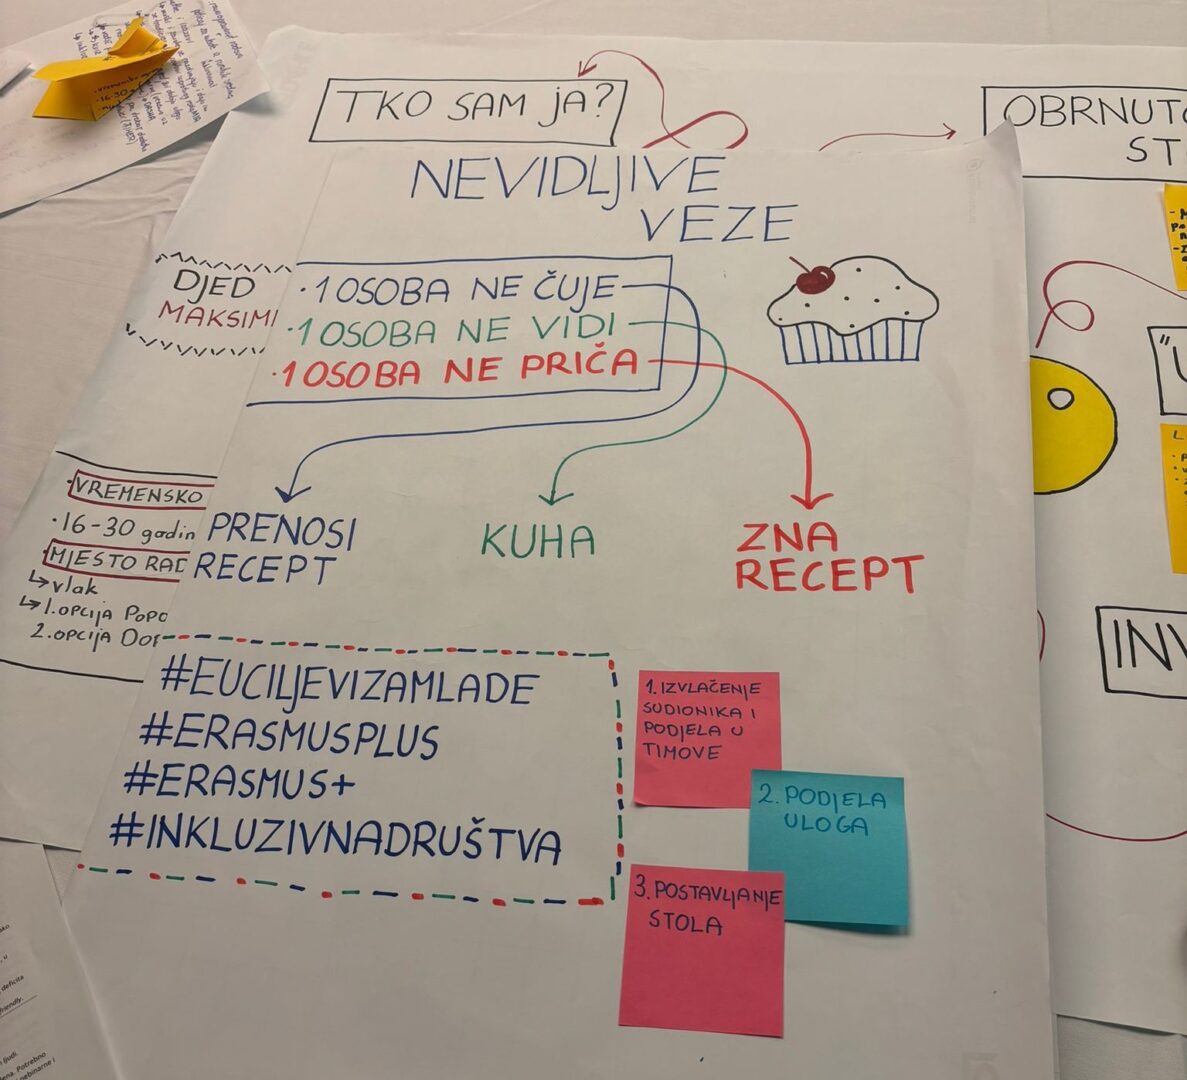 TKO SAM JA?
OBRNUTO
NEVIDLJIVE
VEZE
DJED
MAKSIMI
·1 OSOBA NE ČUJE
·1 OSOBA NE VIDI
·1 OSOBA NE PRIČA
PRENOSI
RECEPT
KUHA
ZNA
RECEPT
·VREMENSKO
·16-30 godin
MJESTO RAD
↳vlak
↳1.opcija Popo
2.opcija Dor
#EUCILJEVIZAMLADE
#ERASMUSPLUS
#ERASMUS+
#INKLUZIVNADRUŠTVA
1. IZVLAČENJE
SUDIONIKA I
PODJELA U
TIMOVE
2. PODJELA
ULOGA
3. POSTAVLJANJE
STOLA
ST
INV
deficita
friendly.
ljudi.
Potrebno